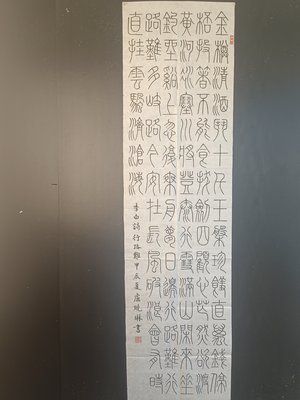 金樽清酒鬥十千玉盤珍羞直萬錢停
杯投箸不能食拔劍四顧心茫然欲渡
黃河冰塞川將登太行雪滿山閒來垂
釣坐谿上忽復乘舟夢日邊行路難行
路難多岐路今安在長風破浪會有時
直挂雲帆濟滄海
李白詩行路難甲辰夏盧曉琳書